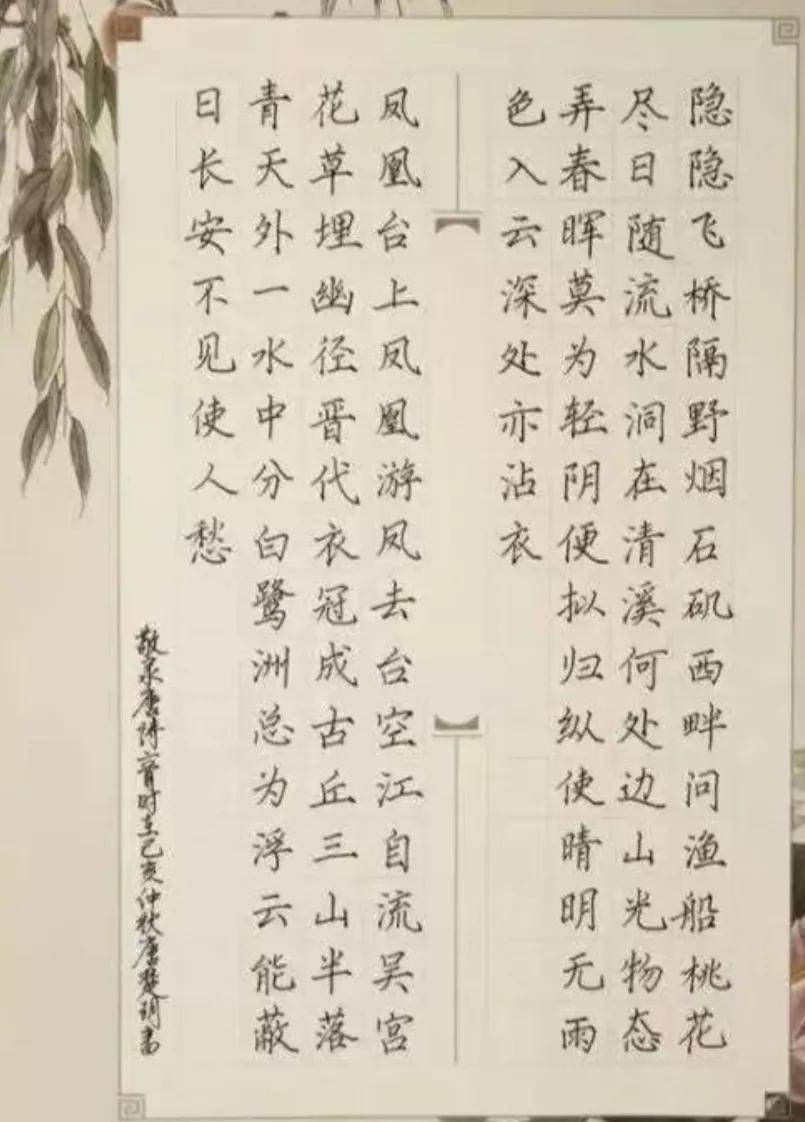 隐隐飞桥隔野烟石矶西畔问渔船桃花
尽日随流水洞在清溪何处边山光物态
弄春晖莫为轻阴便拟归纵使晴明无雨
色入云深处亦沾衣
凤凰台上凤凰游凤去台空江自流吴宫
花草埋幽径晋代衣冠成古丘三山半落
青天外一水中分白鹭洲总为浮云能蔽
日长安不见使人愁
敬录唐诗二首时在己亥仲秋唐楚玥书